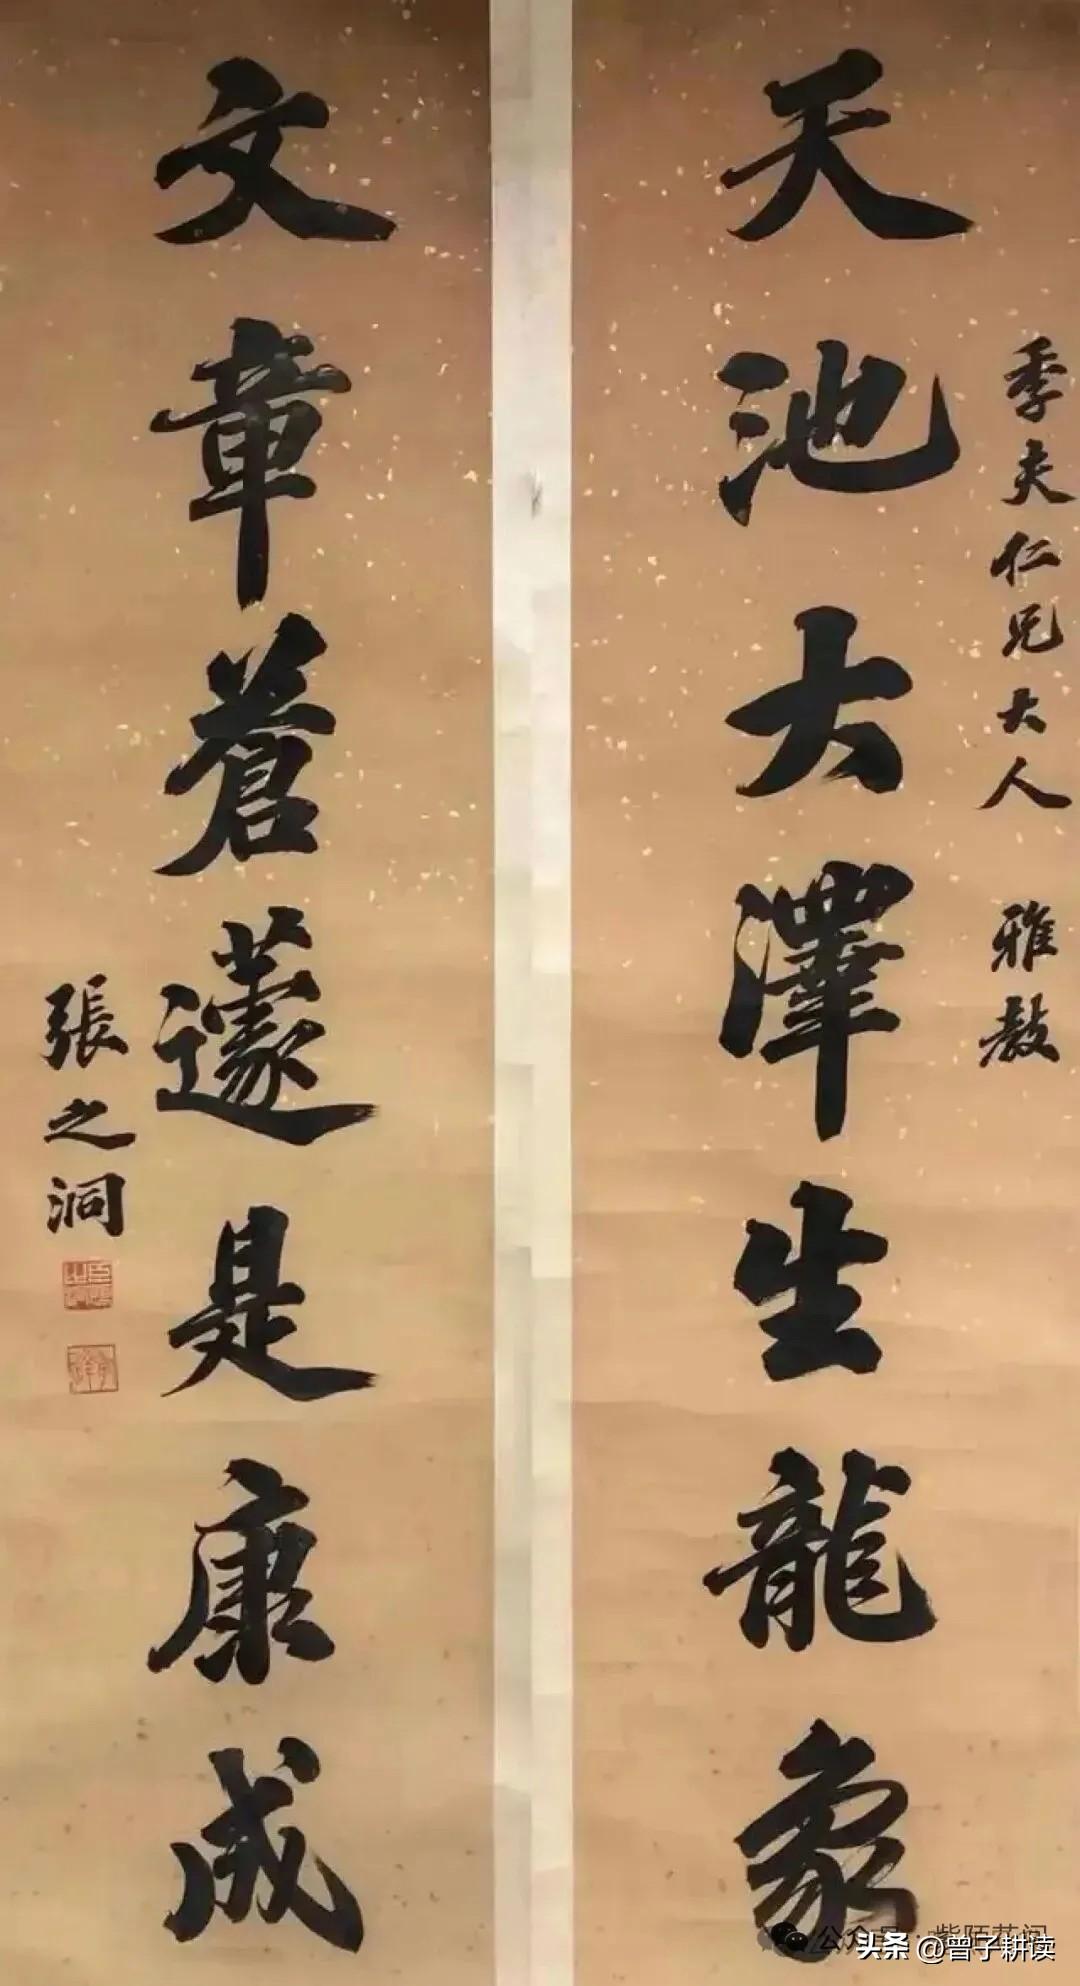 季夫仁兄大人 雅教
天池大澤生龍象
文章蒼邃是康成
張之洞
公众号·紫陌花间
头条 @曾子耕读